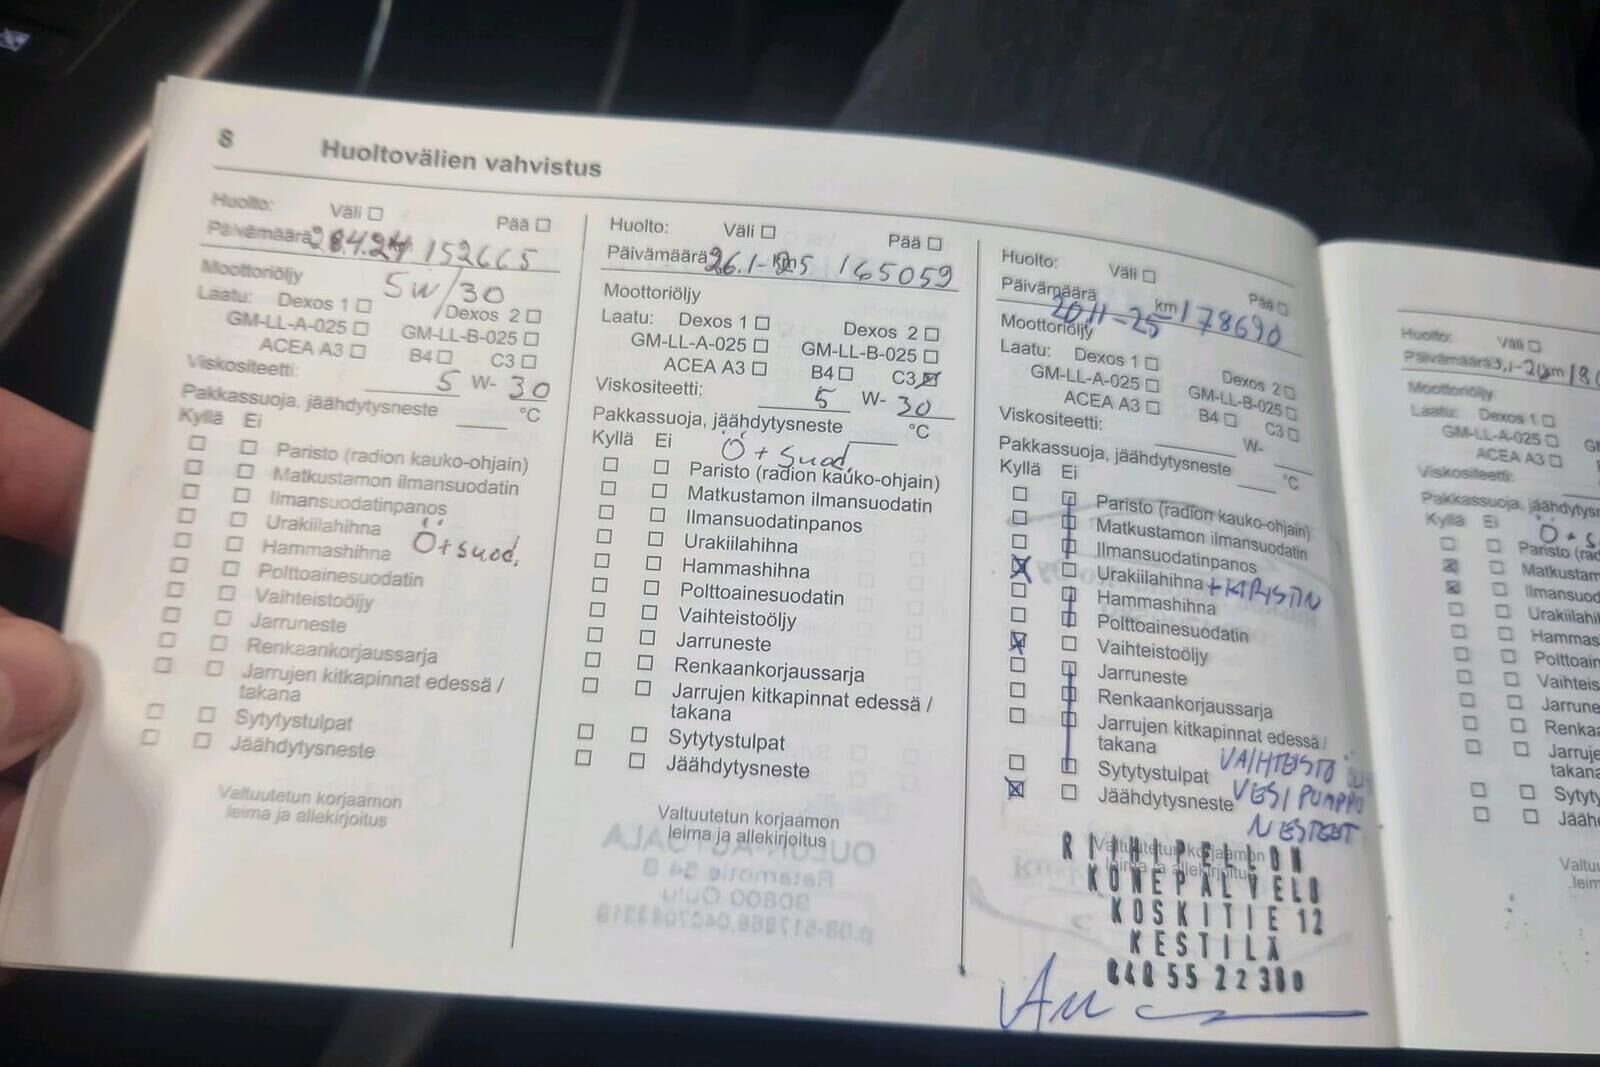 8 Huoltovälien vahvistus
Huolto: Väli Pää
Päivämäärä 28.4.24 152665
Moottoriöljy 5W/30
Laatu: Dexos 1 Dexos 2
GM-LL-A-025 GM-LL-B-025
ACEA A3 B4 C3
Viskositeetti: 5 W- 30
Pakkassuoja, jäähdytysneste °C
Kyllä Ei
Paristo (radion kauko-ohjain)
Matkustamon ilmansuodatin
Ilmansuodatinpanos
Urakiilahihna
Hammashihna Ö+suod.
Polttoainesuodatin
Vaihteistoöljy
Jarruneste
Renkaankorjaussarja
Jarrujen kitkapinnat edessä /
takana
Sytytystulpat
Jäähdytysneste
Valtuutetun korjaamon
leima ja allekirjoitus
Huolto: Väli Pää
Päivämäärä 26.1-25 km 165059
Moottoriöljy
Laatu: Dexos 1 Dexos 2
GM-LL-A-025 GM-LL-B-025
ACEA A3 B4 C3
Viskositeetti: 5 W- 30
Pakkassuoja, jäähdytysneste °C
Kyllä Ei Ö+suod.
Paristo (radion kauko-ohjain)
Matkustamon ilmansuodatin
Ilmansuodatinpanos
Urakiilahihna
Hammashihna
Polttoainesuodatin
Vaihteistoöljy
Jarruneste
Renkaankorjaussarja
Jarrujen kitkapinnat edessä /
takana
Sytytystulpat
Jäähdytysneste
Valtuutetun korjaamon
leima ja allekirjoitus
Huolto: Väli Pää
Päivämäärä 20.11-25 km 178690
Moottoriöljy
Laatu: Dexos 1 Dexos 2
GM-LL-A-025 GM-LL-B-025
ACEA A3 B4 C3
Viskositeetti: W-
Pakkassuoja, jäähdytysneste °C
Kyllä Ei
Paristo (radion kauko-ohjain)
Matkustamon ilmansuodatin
Ilmansuodatinpanos
Urakiilahihna +KIRISTIN
Hammashihna
Polttoainesuodatin
Vaihteistoöljy
Jarruneste
Renkaankorjaussarja
Jarrujen kitkapinnat edessä /
takana
Sytytystulpat VAIHTEISTO
Jäähdytysneste VESIPUMPPU
NESTEET
Valtuutetun korjaamon
leima ja allekirjoitus
RIIHIPELLON
KONEPALVELU
KOSKITIE 12
KESTILÄ
040 55 22 380
Huolto: Väli
Päivämäärä km
Moottoriöljy
Laatu: Dexos 1
GM-LL-A-025
ACEA A3
Viskositeetti:
Pakkassuoja,
Kyllä Ei